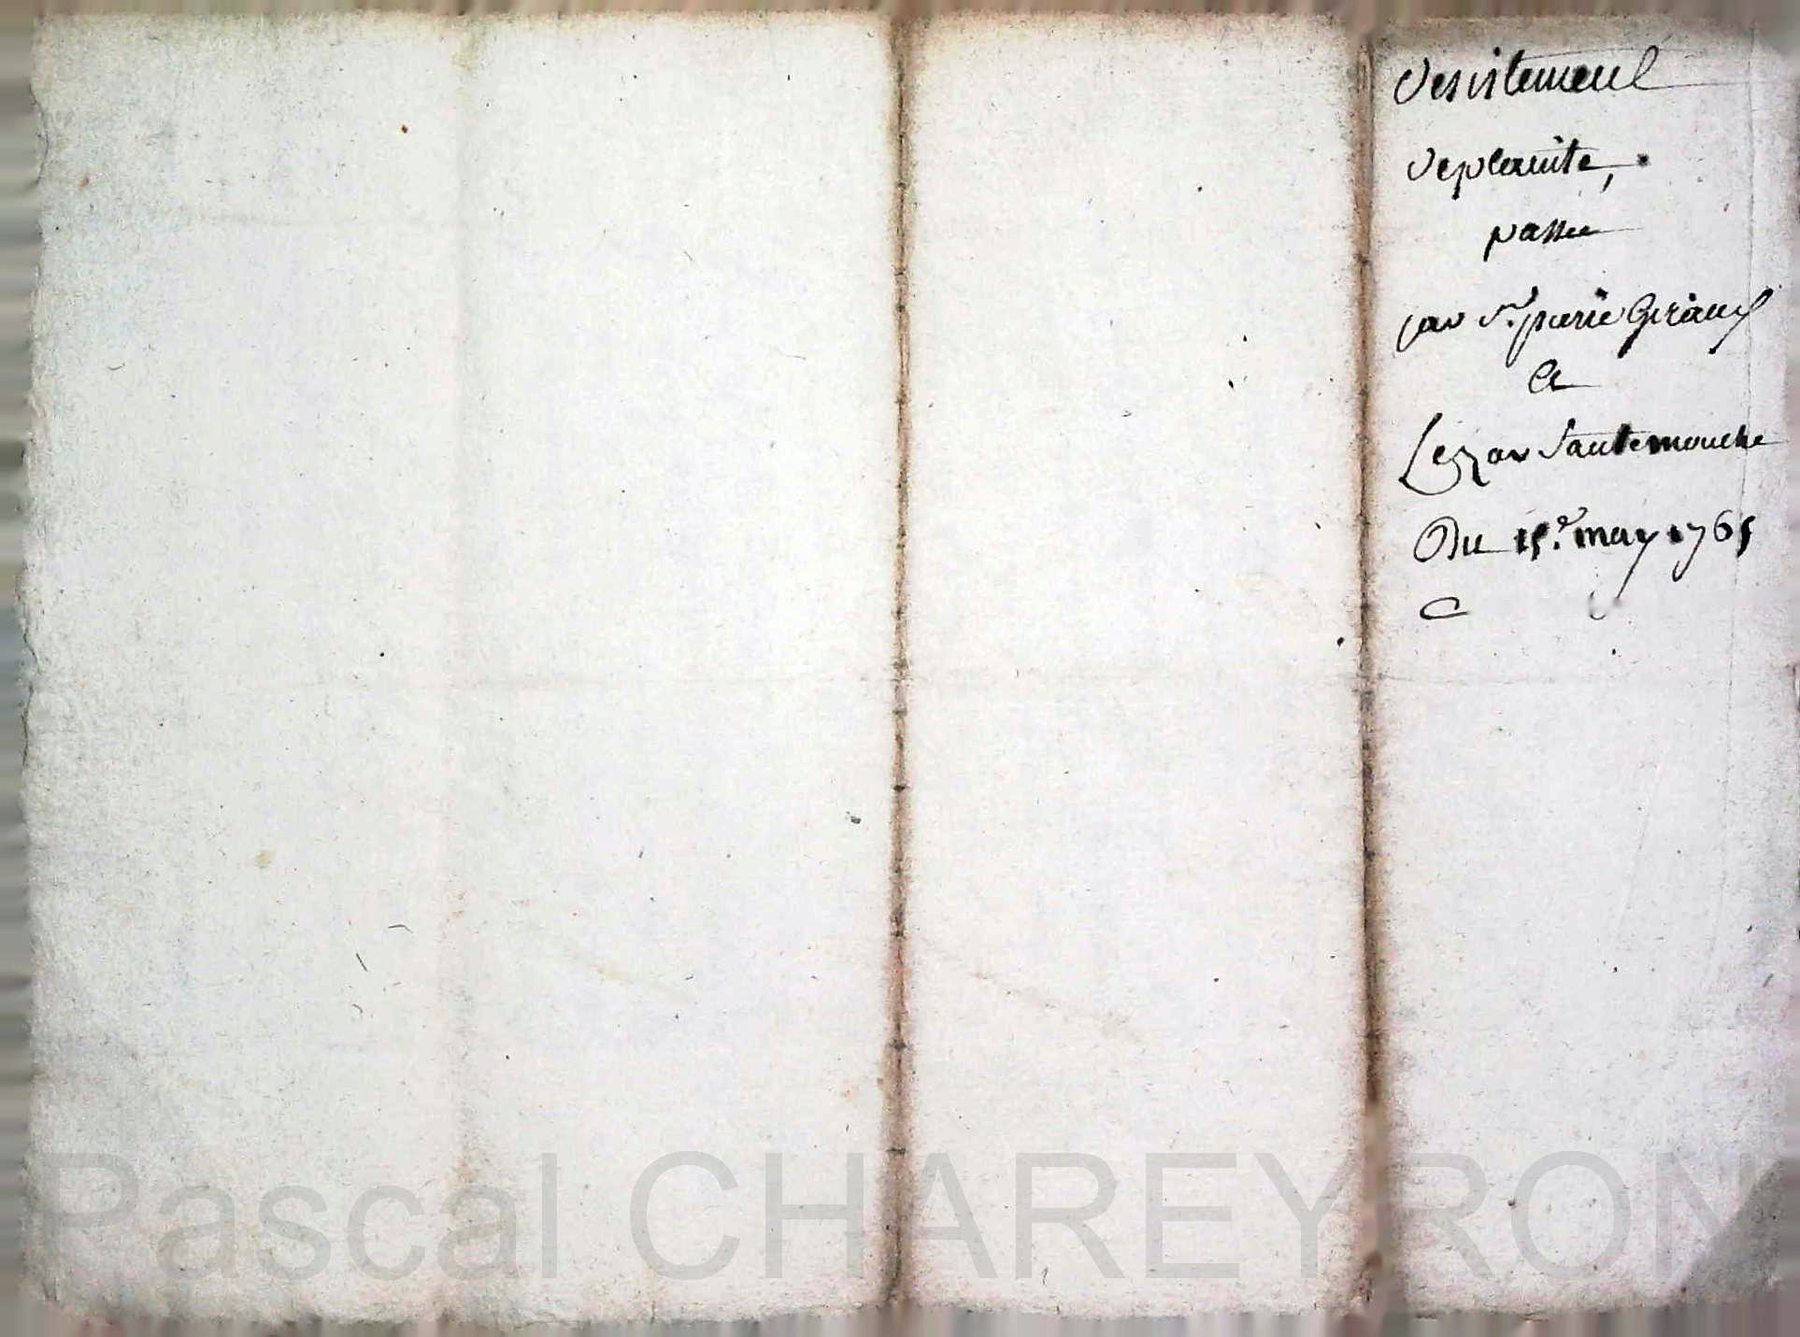 Desistement
deplainte,
passée
par Sr. pierre Giraud
et
Cezar Sautemouche
Du 15e. may 1765
Pascal CHAREYRON